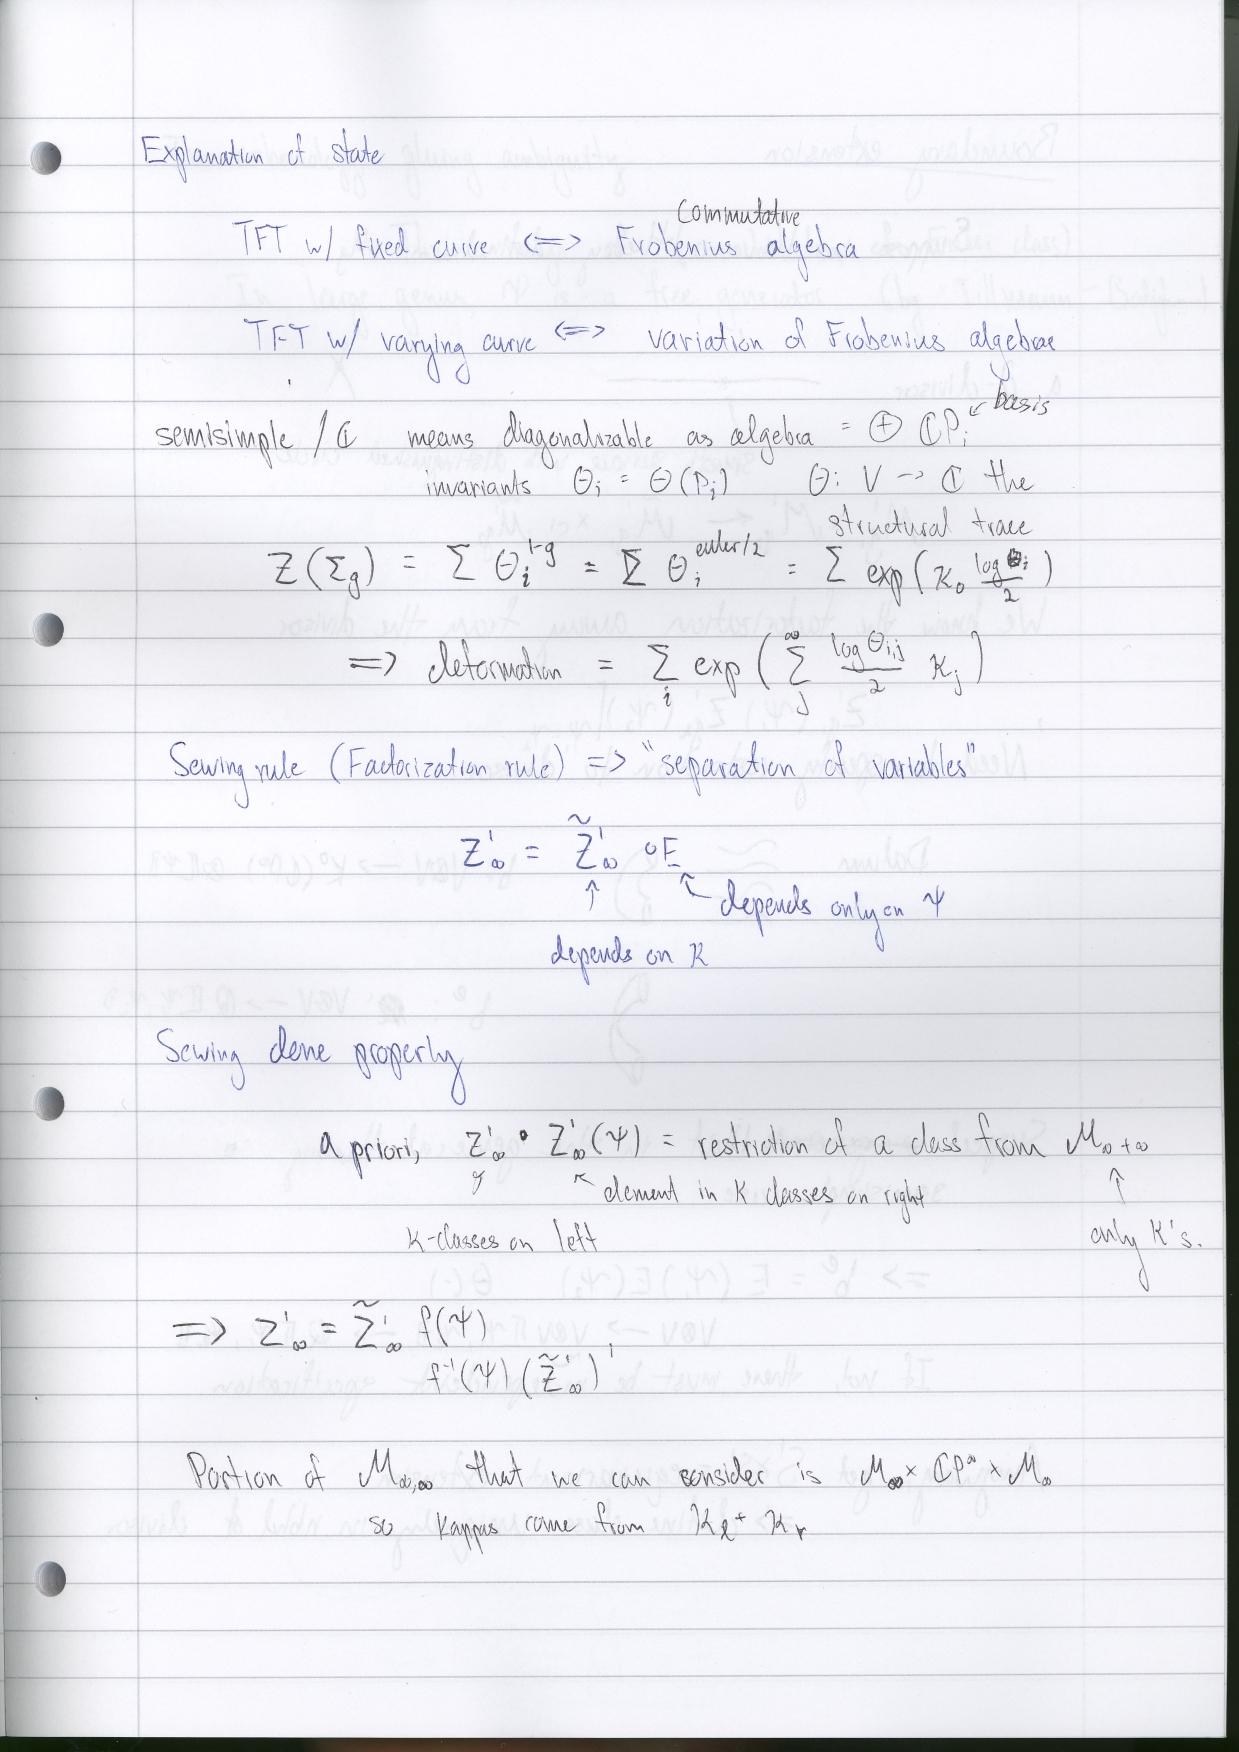 Explanation of state
Commutative
TFT w/ fixed curve <=> Frobenius algebra
TFT w/ varying curve <=> variation of Frobenius algebrae
basis
semisimple / ℂ means diagonalizable as algebra = ⊕ ℂP_i
invariants Θ_i = Θ(P_i) Θ: V -> ℂ the
structural trace
Z(Σ_g) = Σ Θ_i^{1-g} = Σ Θ_i^{euler/2} = Σ exp(κ_0 log Θ_i / 2)
=> deformation = Σ_i exp(Σ_j^∞ log Θ_{i,j} / 2 κ_j)
Sewing rule (Factorization rule) => "separation of variables"
Z^1_∞ = Z̃^1_∞ ∘ E
↑ ↖ depends only on ψ
depends on κ
Sewing done properly
a priori, Z^1_∞ • Z^1_∞(ψ) = restriction of a class from M_{∞+∞}
element in κ classes on right ↑
κ-classes on left only κ's.
=> Z^1_∞ = Z̃^1_∞ f(ψ)
f^{-1}(ψ)(Z̃^1_∞)^1
Portion of M_{∞,∞} that we can consider is M_∞ × ℂP^∞ × M_∞
so kappas come from κ_l + κ_r